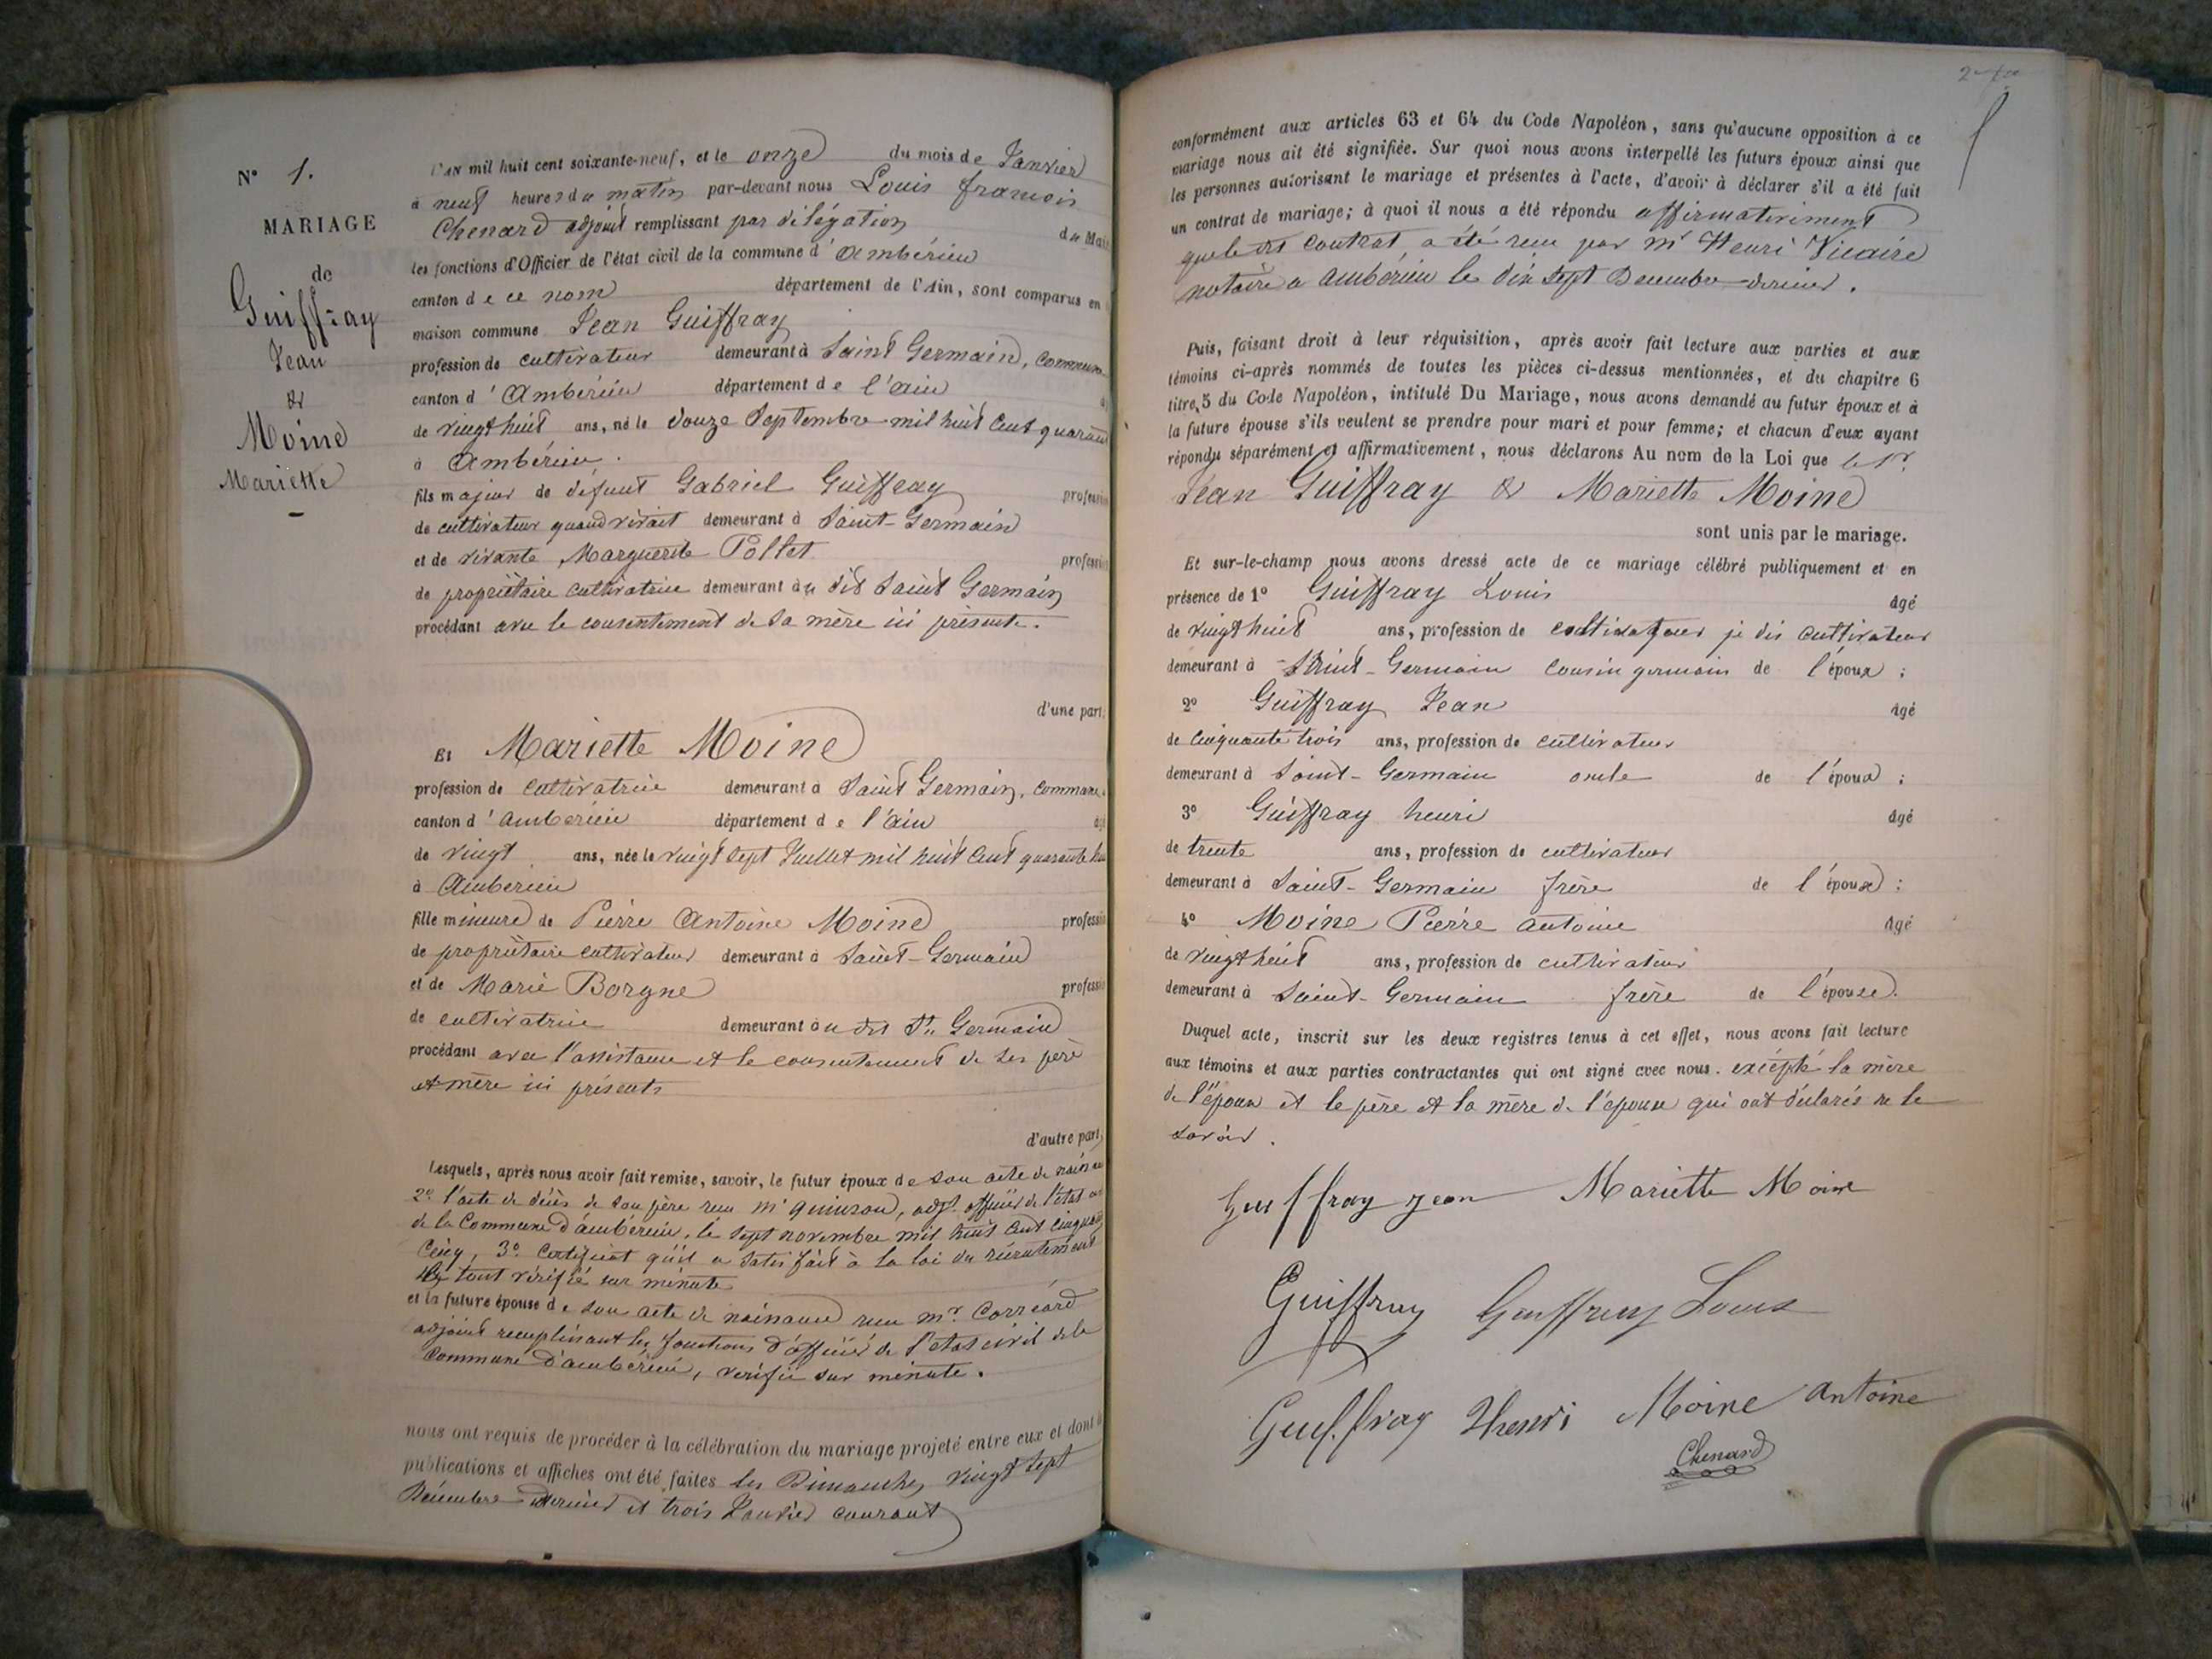 N° 1.
MARIAGE
de
Guiffray
Jean
&
Moine
Mariette
L'AN mil huit cent soixante-neuf, et le onze du mois de Janvier
à neuf heures du matin par-devant nous Louis françois
Chenard adjoint remplissant par délégation du Mai
les fonctions d'Officier de l'état civil de la commune d'ambérieu
canton de ce nom département de l'Ain, sont comparus en
maison commune Jean Guiffray
profession de cultivateur demeurant à Saint Germain, commune
canton d'Ambérieu département de l'ain
de vingt huit ans, né le douze Septembre mil huit cent quarante
à Ambérieu.
fils majeur de défunt Gabriel Guiffray profession
de cultivateur quand vivait demeurant à Saint-Germain
et de vivante Marguerite Pollet profession
de propriétaire cultivatrice demeurant au dit Saint Germain
procédant avec le consentement de sa mère ici présente.
d'une part,
Et Mariette Moine
profession de cultivatrice demeurant à Saint Germain, commune
canton d'ambérieu département de l'ain
de vingt ans, née le vingt sept Juillet mil huit cent quarante hu
à Amberieu
fille mineure de Pierre Antoine Moine professio
de propriétaire cultivateur demeurant à Saint-Germain
et de Marie Borgne professio
de cultivatrice demeurant au dit St Germain
procédant avec l'assistance et le consentement de ses père
et mère ici présents
d'autre part,
Lesquels, après nous avoir fait remise, savoir, le futur époux de son acte de naissance
2° l'acte de décès de son père reçu Mr quinson, adjt officier de l'état
de la Commune d'ambérieu, le sept novembre mil huit cent cinquante
cinq, 3° Certificat qu'il a satisfait à la loi du récrutement
le tout vérifié sur minute
et la future épouse de son acte de naissance reçu mr. Corréard
adjoint remplissant les fonctions d'officier de l'etat civil de la
commune d'ambérieu, vérifié sur minute.
nous ont requis de procéder à la célébration du mariage projeté entre eux et dont
publications et affiches ont été faites les Dimanches vingt sept
Décembre dernier et trois Janvier courant
conformément aux articles 63 et 64 du Code Napoléon, sans qu'aucune opposition à ce
mariage nous ait été signifiée. Sur quoi nous avons interpellé les futurs époux ainsi que
les personnes autorisant le mariage et présentes à l'acte, d'avoir à déclarer s'il a été fait
un contrat de mariage; à quoi il nous a été répondu affirmativement
que le dit contrat a été reçu par mr Henri Vicaire
notaire a ambérieu le dix sept Decembre dernier.
Puis, faisant droit à leur réquisition, après avoir fait lecture aux parties et aux
témoins ci-après nommés de toutes les pièces ci-dessus mentionnées, et du chapitre 6
titre 5 du Code Napoléon, intitulé Du Mariage, nous avons demandé au futur époux et à
la future épouse s'ils veulent se prendre pour mari et pour femme; et chacun d'eux ayant
répondu séparément et affirmativement, nous déclarons Au nom de la Loi que le Sr
Jean Guiffray & Mariette Moine
sont unis par le mariage.
Et sur-le-champ nous avons dressé acte de ce mariage célébré publiquement et en
présence de 1° Guiffray Louis âgé
de vingt huit ans, profession de je dis cultivateur
demeurant à Saint-Germain cousin germain de l'époux;
2° Guiffray Jean âgé
de cinquante trois ans, profession de cultivateur
demeurant à Saint-Germain oncle de l'époux;
3° Guiffray henri âgé
de trente ans, profession de cultivateur
demeurant à Saint-Germain frère de l'époux:
4° Moine Pierre antoine âgé
de vingt huit ans, profession de cultivateur
demeurant à Saint-Germain frère de l'épouse.
Duquel acte, inscrit sur les deux registres tenus à cet effet, nous avons fait lecture
aux témoins et aux parties contractantes qui ont signé avec nous. excépté la mère
de l'époux et le père et la mère de l'épouse qui ont déclarés ne le
savoir.
Guiffray jean Mariette Moine
Guiffray Guiffray Louis
Guiffray Henri Moine Antoine
Chenard